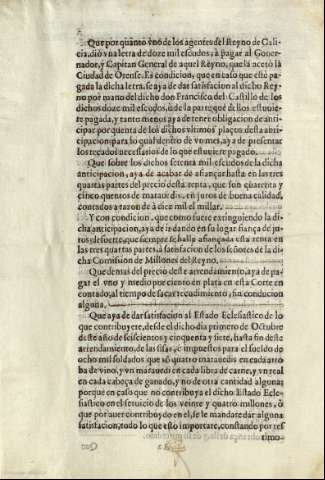 Que por quanto vno de los agentes del Reyno de Gali-
cia, dió vna letra de doze mil escudos, a pagar al Gouer-
nador, y Capitan General de aquel Reyno, que la acetó la
Ciudad de Orense. Es condicion, que en caso que esté pa-
gada la dicha letra, se aya de dar satisfacion al dicho Rey
no por mano del dicho don Francisco del Castillo de los
dichos doze mil escudos, ò de la parte que dellos estuuie-
re pagada, y tanto menos aya de tener obligacion de anti-
cipar por quenta de los dichos vltimos plaços desta anti-
cipacion, para lo qual dentro de mes, aya de presentar
los recados necessarios de lo que estuuiere pagado.
Que sobre los dichos setenta mil escudos de la dicha
anticipacion, aya de acabar de afiançar hasta en las tres
quartas partes del precio desta renta, que son quarenta y
cinco quentos de marauedis, en juros de buena calidad,
contados a razon de à diez mil el millar.
Y con condicion, que como fuere extinguiendo la di-
cha anticipacion, aya de ir dando en su lugar fiança de ju-
ros de suerte, que siempre se halle afiançada esta renta en
las tres quartas partes, à satisfacion de los señores de la di-
cha Comision de Millones del Reyno.
Que demas del precio deste arrendamiento, aya de pa-
gar el vno y medio por ciento en plata en esta Corte en
contado, al tiempo de sacar recudimiento, sin condicion
alguna.
Que aya de dar satisfacion al Estado Eclesiastico de lo
que contribuyere, desde el dicho dia primero de Octubre
deste año de seiscientos y cinquenta y siete, hasta fin desta
arrendamiento, de las sisas, è impuestos para el sueldo de
ocho mil soldados que son quatro marauedis en cada arro
ba de vino, y vn marauedi en cada libra de carne, y vn real
en cada cabeça de ganado, y no de otra cantidad alguna;
porque en caso que no contribuya el dicho Estado Ecle-
siastico en el seruicio de los veinte y quatro millones, ò
que por auer contribuydo en el, se le mandare dar alguna
satisfacion, todo lo que esto importare, constando por tes
timo-